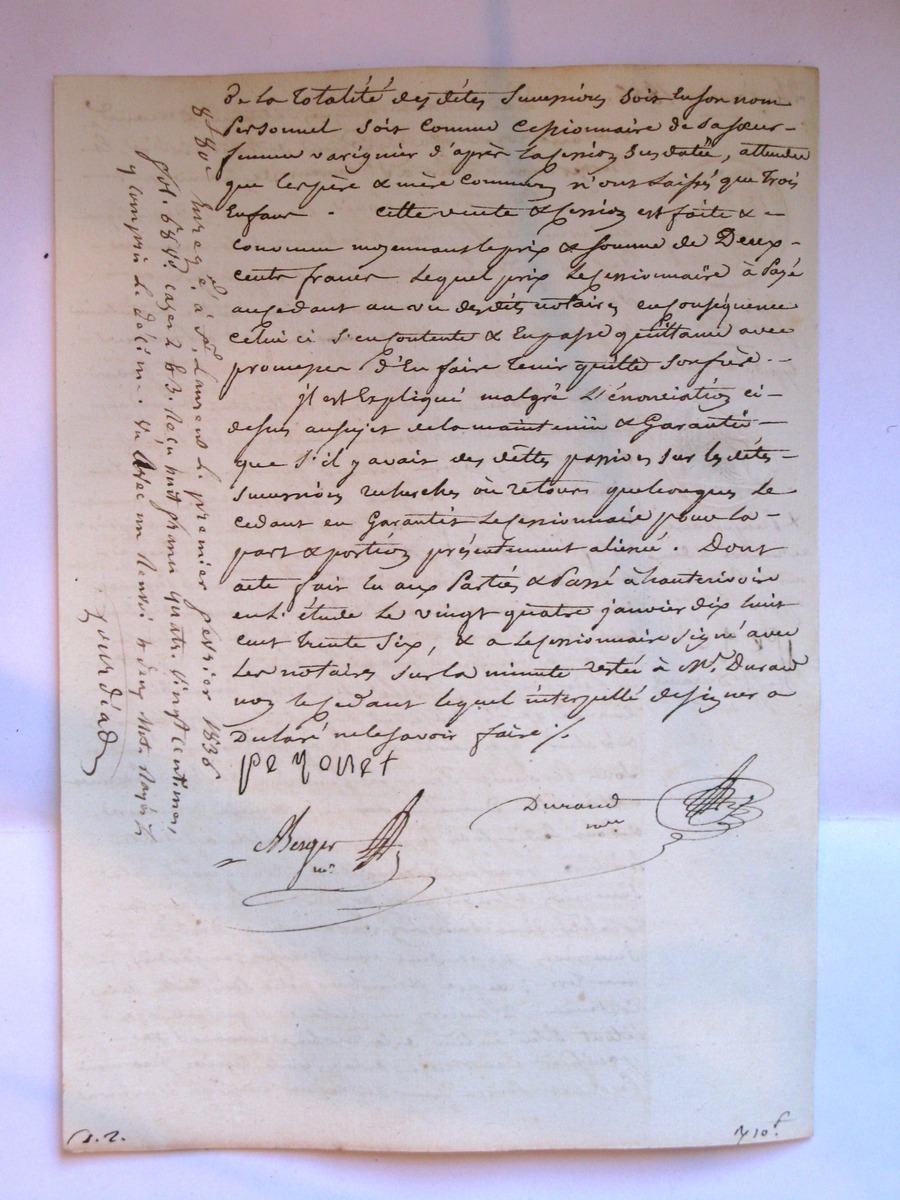 de la totalité des dites successions soit en son nom
Personnel soit comme cessionnaire de sa sœur -
femme varignier d'après la cession susdatée, attendu
que les père & mère communs n'ont laissés que trois
Enfans. Cette vente & cession est faite & -
convenue moyennant le prix & somme de Deux -
cents francs lequel prix le cessionnaire à payé
au cédant au vu des dits notaires en conséquence
celui ci s'en contente & en passe quittance avec
promesse d'En faire tenir quitte son frère. --
Il est Expliqué malgré l'énonciation ci -
dessus au sujet de la maintenue & Garantie -
que s'il y avait des dettes passives sur les dites -
successions recherches où retours quelconques le
cedant en Garantit le cessionnaire pour la -
part & portion présentement alienée. Dont
acte fait lu aux Parties & Passé à hauterivoire
en l'étude le vingt quatre janvier dix huit
cent trente six, & a le cessionnaire signé avec
les notaires sur la minute restée à Me. Durand
non le cedant lequel interpellé de signer a
Declaré ne le savoir faire /.
peyonet
Durand
nre
Berger
nre
Enregé. à St. Laurent le premier fevrier 1836
fol. 68 Vo. cases 2 & 3. Reçu huit francs quatre vingt centimes,
y compris le décime.
Jourdiad
710f